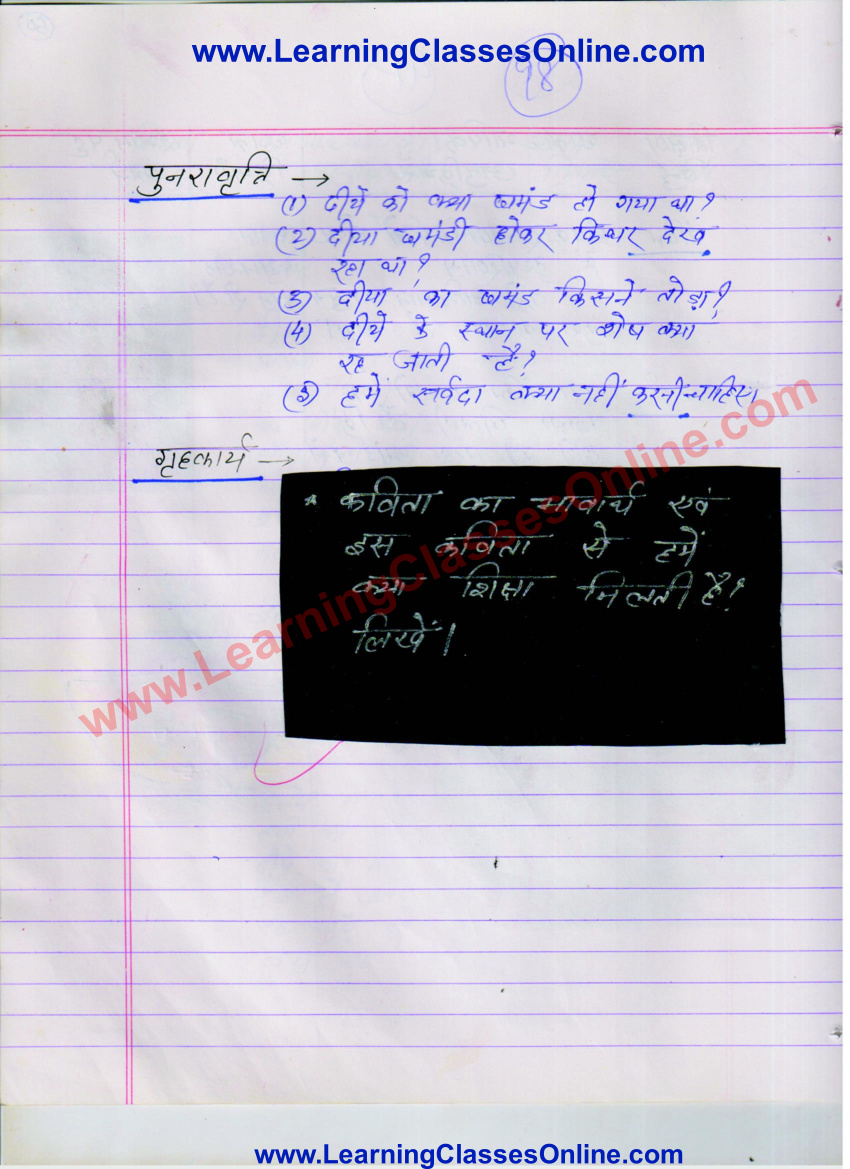 www.LearningClassesOnline.com
98
पुनरावृत्ति →
(1) दीये को क्या घमंड हो गया था?
(2) दीया घमंडी होकर किधर देख
रहा था?
(3) दीया का घमंड किसने तोड़ा?
(4) दीये के स्थान पर शेष क्या
रह जाती है?
(5) हमें सर्वदा क्या नहीं करनी चाहिए।
गृहकार्य →
* कविता का भावार्थ एवं
इस कविता से हमें
क्या शिक्षा मिलती है?
लिखें।
www.LearningClassesOnline.com
www.LearningClassesOnline.com